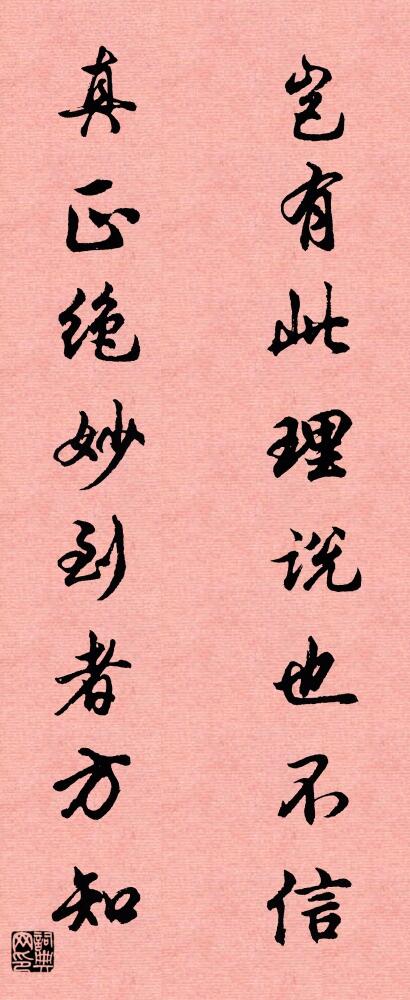 岂有此理说也不信
真正绝妙到者方知
詞典网印